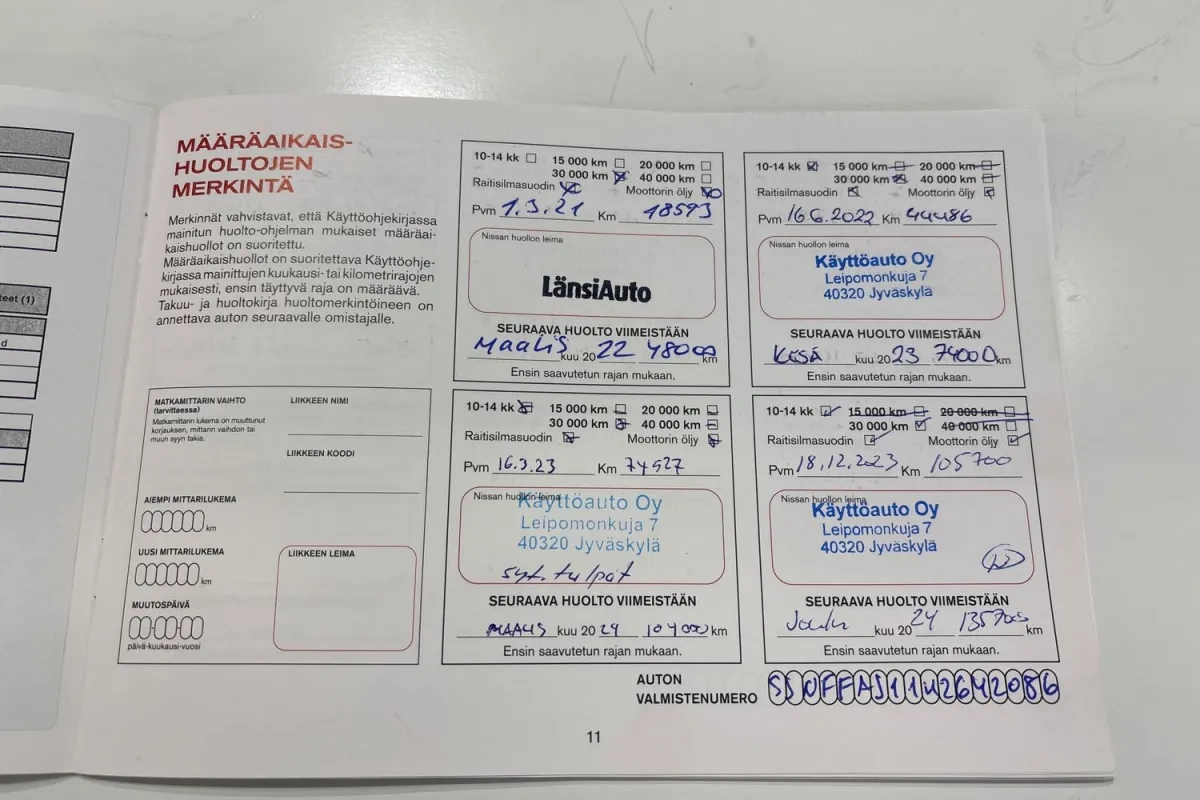 teet (1)
d
MÄÄRÄAIKAIS-
HUOLTOJEN
MERKINTÄ
Merkinnät vahvistavat, että Käyttöohjekirjassa
mainitun huolto-ohjelman mukaiset määräai-
kaishuollot on suoritettu.
Määräaikaishuollot on suoritettava Käyttöohje-
kirjassa mainittujen kuukausi- tai kilometrirajojen
mukaisesti, ensin täyttyvä raja on määräävä.
Takuu- ja huoltokirja huoltomerkintöineen on
annettava auton seuraavalle omistajalle.
MATKAMITTARIN VAIHTO
(tarvittaessa)
Matkamittarin lukema on muuttunut
korjauksen, mittarin vaihdon tai
muun syyn takia.
LIIKKEEN NIMI
LIIKKEEN KOODI
AIEMPI MITTARILUKEMA
km
UUSI MITTARILUKEMA
km
MUUTOSPÄIVÄ
päivä-kuukausi-vuosi
LIIKKEEN LEIMA
10-14 kk 15 000 km 20 000 km
30 000 km 40 000 km
Raitisilmasuodin Moottorin öljy
Pvm 1.3.21 Km 18593
Nissan huollon leima
LänsiAuto
SEURAAVA HUOLTO VIIMEISTÄÄN
Maalis kuu 20 22 48000 km
Ensin saavutetun rajan mukaan.
10-14 kk 15 000 km 20 000 km
30 000 km 40 000 km
Raitisilmasuodin Moottorin öljy
Pvm 16.6.2022 Km 44486
Nissan huollon leima
Käyttöauto Oy
Leipomonkuja 7
40320 Jyväskylä
SEURAAVA HUOLTO VIIMEISTÄÄN
KESÄ kuu 20 23 74000 km
Ensin saavutetun rajan mukaan.
10-14 kk 15 000 km 20 000 km
30 000 km 40 000 km
Raitisilmasuodin Moottorin öljy
Pvm 16.3.23 Km 74527
Nissan huollon leima
Käyttöauto Oy
Leipomonkuja 7
40320 Jyväskylä
syt.tulpat
SEURAAVA HUOLTO VIIMEISTÄÄN
MAALIS kuu 20 24 104000 km
Ensin saavutetun rajan mukaan.
10-14 kk 15 000 km 20 000 km
30 000 km 40 000 km
Raitisilmasuodin Moottorin öljy
Pvm 18.12.2023 Km 105700
Nissan huollon leima
Käyttöauto Oy
Leipomonkuja 7
40320 Jyväskylä
SEURAAVA HUOLTO VIIMEISTÄÄN
Joulu kuu 20 24 135700 km
Ensin saavutetun rajan mukaan.
AUTON
VALMISTENUMERO
11